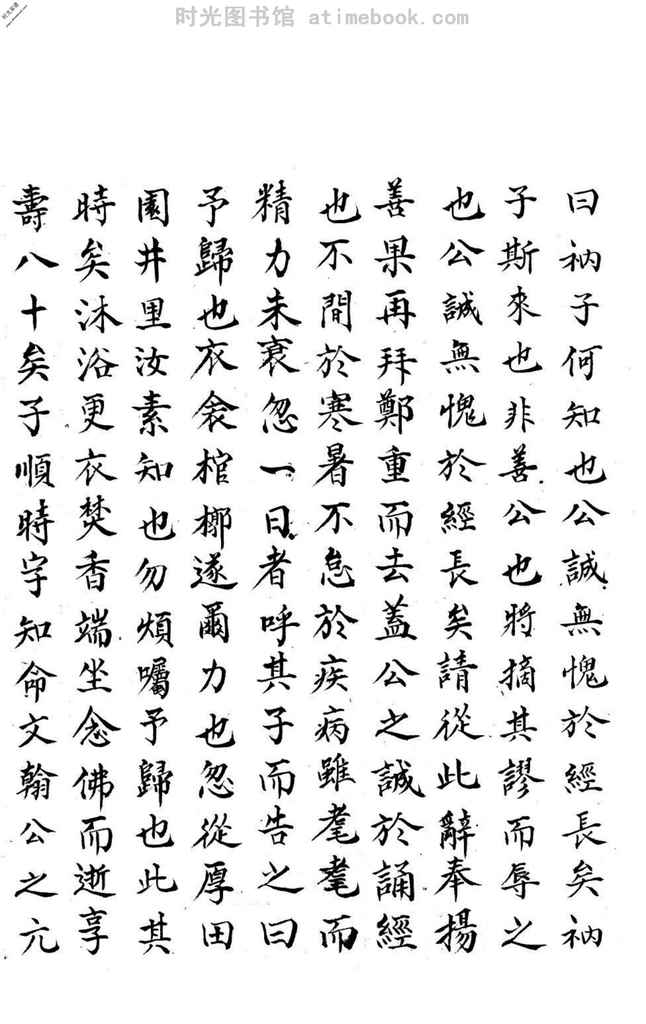 时光图书馆 atimebook.com
曰衲子何知也公誠無愧於經長矣衲
子斯來也非善公也將摘其謬而辱之
也公誠無愧於經長矣請從此辭奉揚
善果再拜鄭重而去蓋公之誠於誦經
也不間於寒暑不怠於疾病雖耄耄而
精力未衰忽一日者呼其子而告之曰
予歸也衣衾棺槨遂爾力也忽從厚田
園井里汝素知也勿煩囑予歸也此其
時矣沐浴更衣焚香端坐念佛而逝享
壽八十矣子順時字知命文翰公之亢